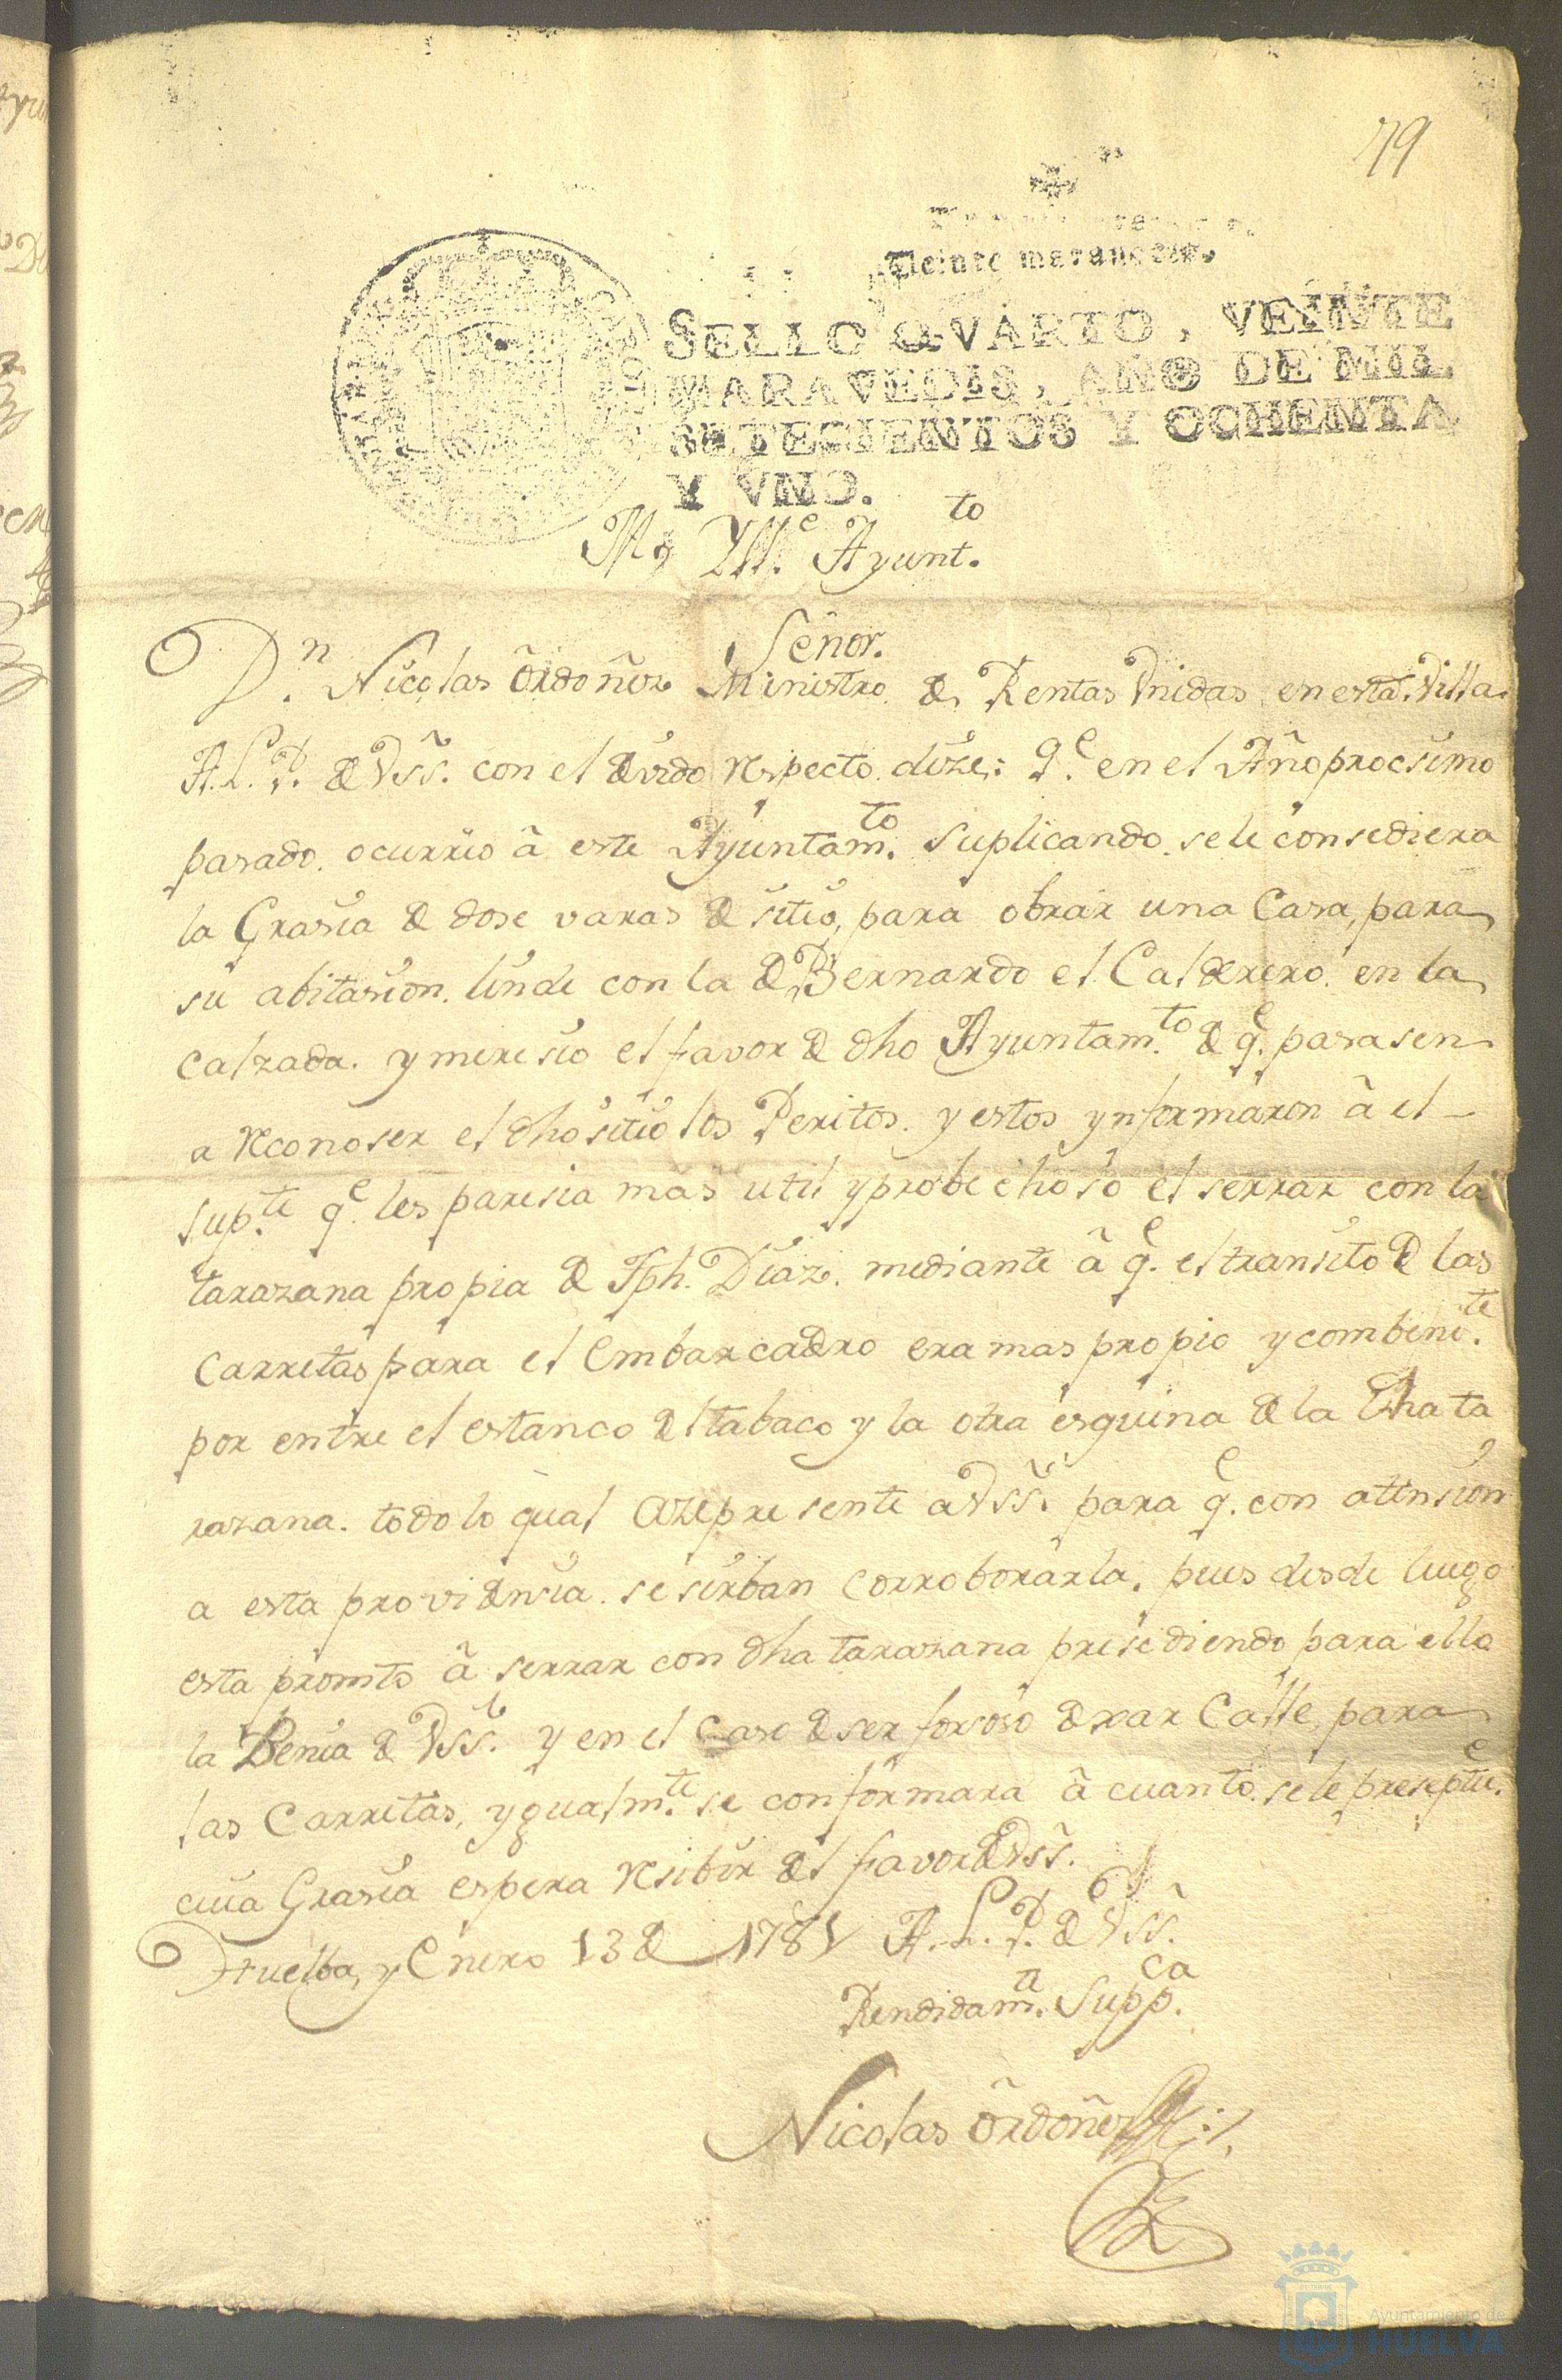 79
Veinte maravedis.
SELLO QVARTO, VEINTE
MARAVEDIS, AÑO DE MIL
SETECIENTOS Y OCHENTA
Y VNO.
My Yll.e Ayunt.to
Señor.
D.n Nicolas Ordoñez Ministro de Rentas Vnidas en esta Villa
A. L. P. de VSS. con el devido respecto dize: q.e en el Año procsimo
pasado. ocurrio â este Ayuntam.to suplicando se le consediera
la Grasia de dose varas de sitio, para obrar una Casa, para
su abitasion. linde con la de Bernardo el Calderero. en la
Calzada. y meresio el favor de dho Ayuntam.to de q.e pasasen
a reconoser el dho sitio los Peritos. y estos ynformaron â el
sup.te q.e les paresia mas util y probechoso el serrar con la
tarazana propia de Jph. Diaz. mediante â q.e el transito de las
Carretas para el Embarcadero era mas propio y combeni.te
por entre el estanco del tabaco y la otra esquina de la dha ta
razana. todo lo qual aze presente a VSS. para q.e con atension
a esta providensia. se sirban Corroborarla. pues desde luego
esta promto â serrar con dha tarazana presediendo para ello
la Benia de VSS. y en el Caso de ser forsoso dexar Calle, para
las Carretas, ygualm.te se conformara â cuanto se le preseptue.
cuia Grasia espera resibir del favor de VSS.
Huelba, y Enero 13 de 1781 A. L. P. de VSS.
Rendidam.te Supp.ca
Nicolas Ordoñez
Ayuntamiento de
HUELVA